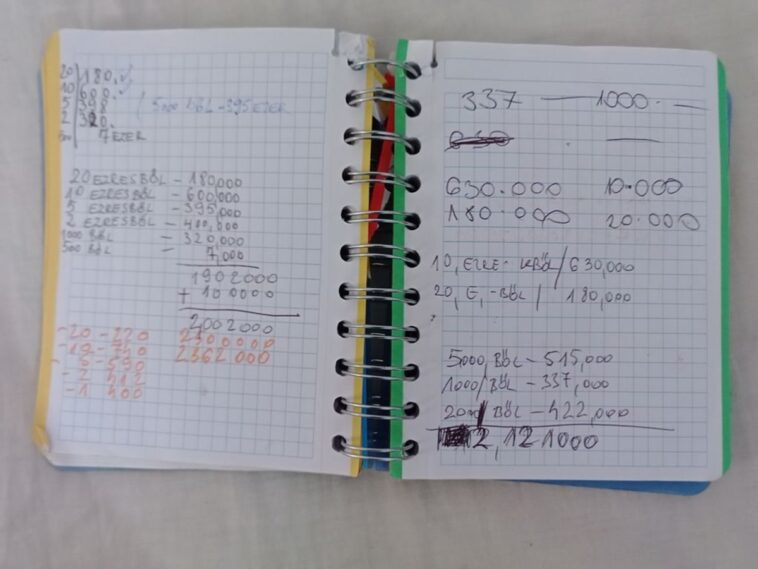 20 180.
10 600.
5 398 / 5000 BŐL - 395 EZER
2 320.
500 7 EZER
20 EZRESBŐL - 180,000
10 EZRESBŐL - 600,000
5 EZRESBŐL - 395,000
2 EZRESBŐL - 400,000
1000 BŐL = 320,000
500 BŐL = 7,000
1902000
+ 100000
2002000
-20 - 220 2300000
2362000
- 5 - 590
- 2 412
- 1 400
337 — 1000. —
630.000 10.000
180.000 20.000
10, EZRE- KBŐL / 630,000
20, E, -BŐL / 180,000
5000, BŐL - 515,000
1000/ BŐL - 337,000
BŐL - 422,000
2,121000